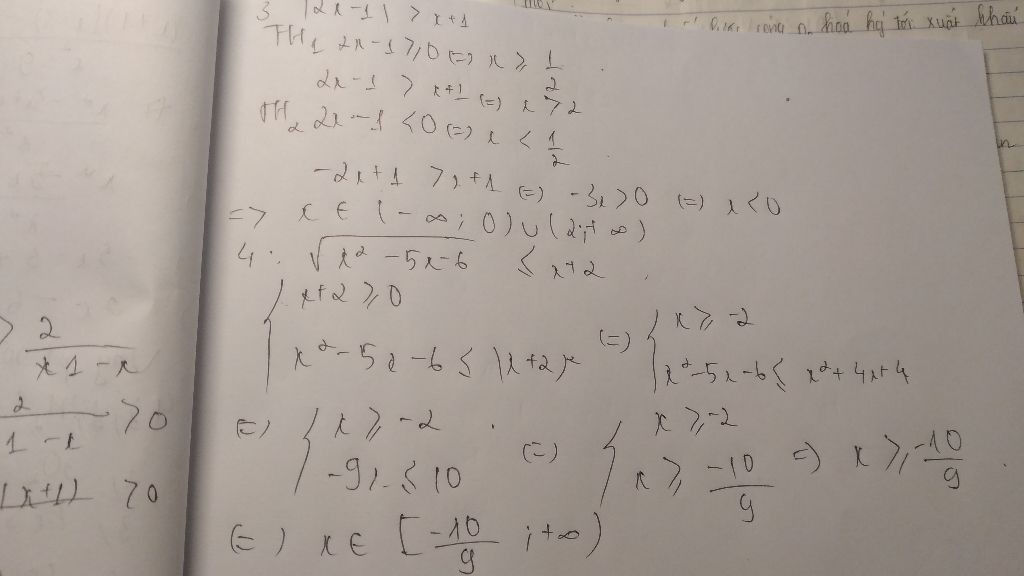 3 |2x-1| > x+1
TH1 2x-1 ⩾ 0 (=) x ⩾ 1/2
2x-1 > x+1 (=) x > 2
TH2 2x-1 < 0 (=) x < 1/2
-2x+1 > x+1 (=) -3x > 0 (=) x < 0
=> x ∈ (-∞; 0) ∪ (2;+∞)
4: √(x²-5x-6) ⩽ x+2
{ x+2 ⩾ 0
x²-5x-6 ⩽ (x+2)² (=) { x ⩾ -2
x²-5x-6 ⩽ x²+4x+4
(=) { x ⩾ -2
-9x ⩽ 10 (=) { x ⩾ -2
x ⩾ -10/9 =) x ⩾ -10/9
(=) x ∈ [-10/9 ; +∞)
> 2/(x1-x)
2/(1-x) > 0
(x+1) > 0
hoá
tới xuất khẩu